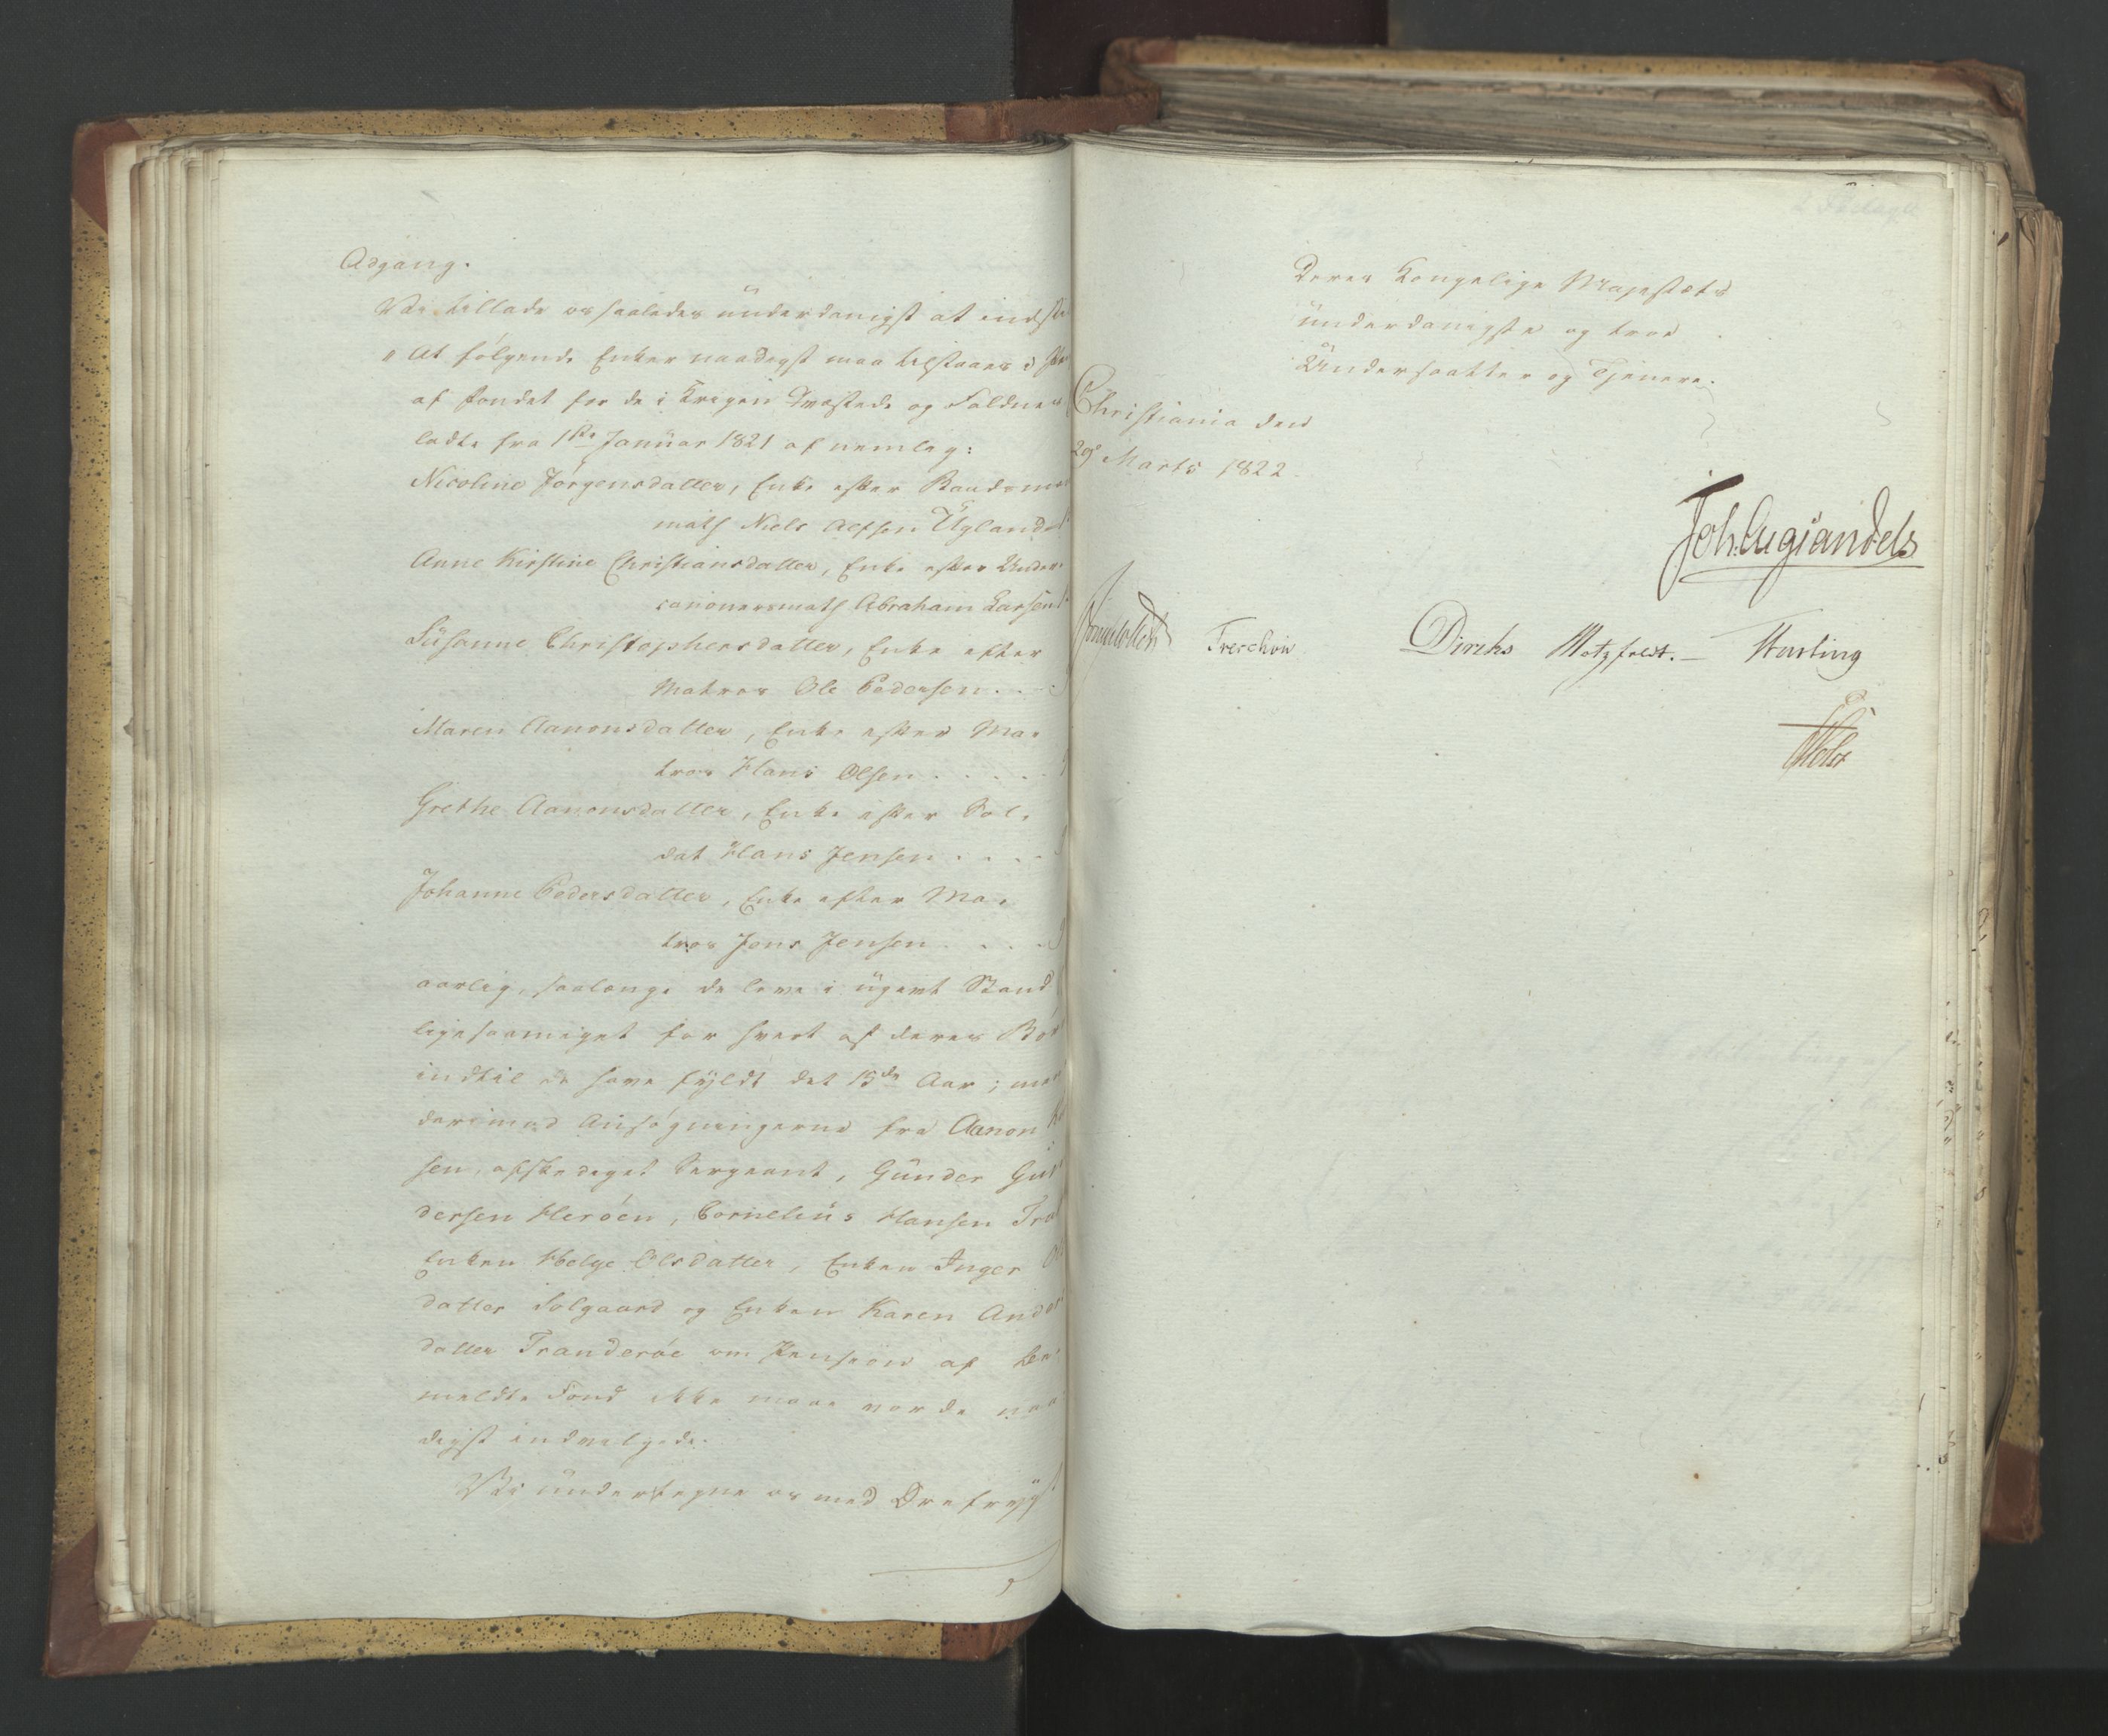 Adgang.
Vi tillade os saaledes underdanigst at indstil
"At følgende Enker naadigst maa tilstaaes i
af Fondet for de i Krigen Qvæstede og Faldnes
ladte fra 1ste Januar 1821 af nemlig:
Nicoline Jørgensdatter, Enke efter Baadsm
math Niels Alfsen Ügland
Anne Kirstine Christiansdatter, Enke efter Under
canoneermath Abraham Larsen
Süsanne Christophersdatter, Enke efter
Matros Ole Pedersen . . .
Maren Aanonsdatter, Enke efter Ma-
tros Hans Olsen . . . . .
Grethe Aanonsdatter, Enke efter Sol-
dat Hans Jensen . . . .
Johanne Pedersdatter, Enke efter Ma-
tros Jens Jensen . . . .
aarlig, saalænge de leve i ügivt Stand
ligesaameget for hvert af deres Bör
indtil de have fÿldt det 15de Aar; men
derimod Ansøgningerne fra Aanon
sen, afskediget Sergeant, Günder Gün
dersen Herøen, Cornelius Hansen
Enken Helge Olsdatter, Enken Inger
datter Solgaard og Enken Karen Ander
datter Tranderøe om Pension af be-
meldte Fond ikke maae vorde naa
digst indvilgede.
Vi ündertegne os med Ærefrÿgt
Deres Kongelige Majestæts
ünderdanigste og troe
Undersaatter og Tjenere.
Christiania den
29d Marts 1822.
Joh. Aug. Sandels
Sommerhielm Treschow Diriks Motzfeldt. – Fasting
Holst